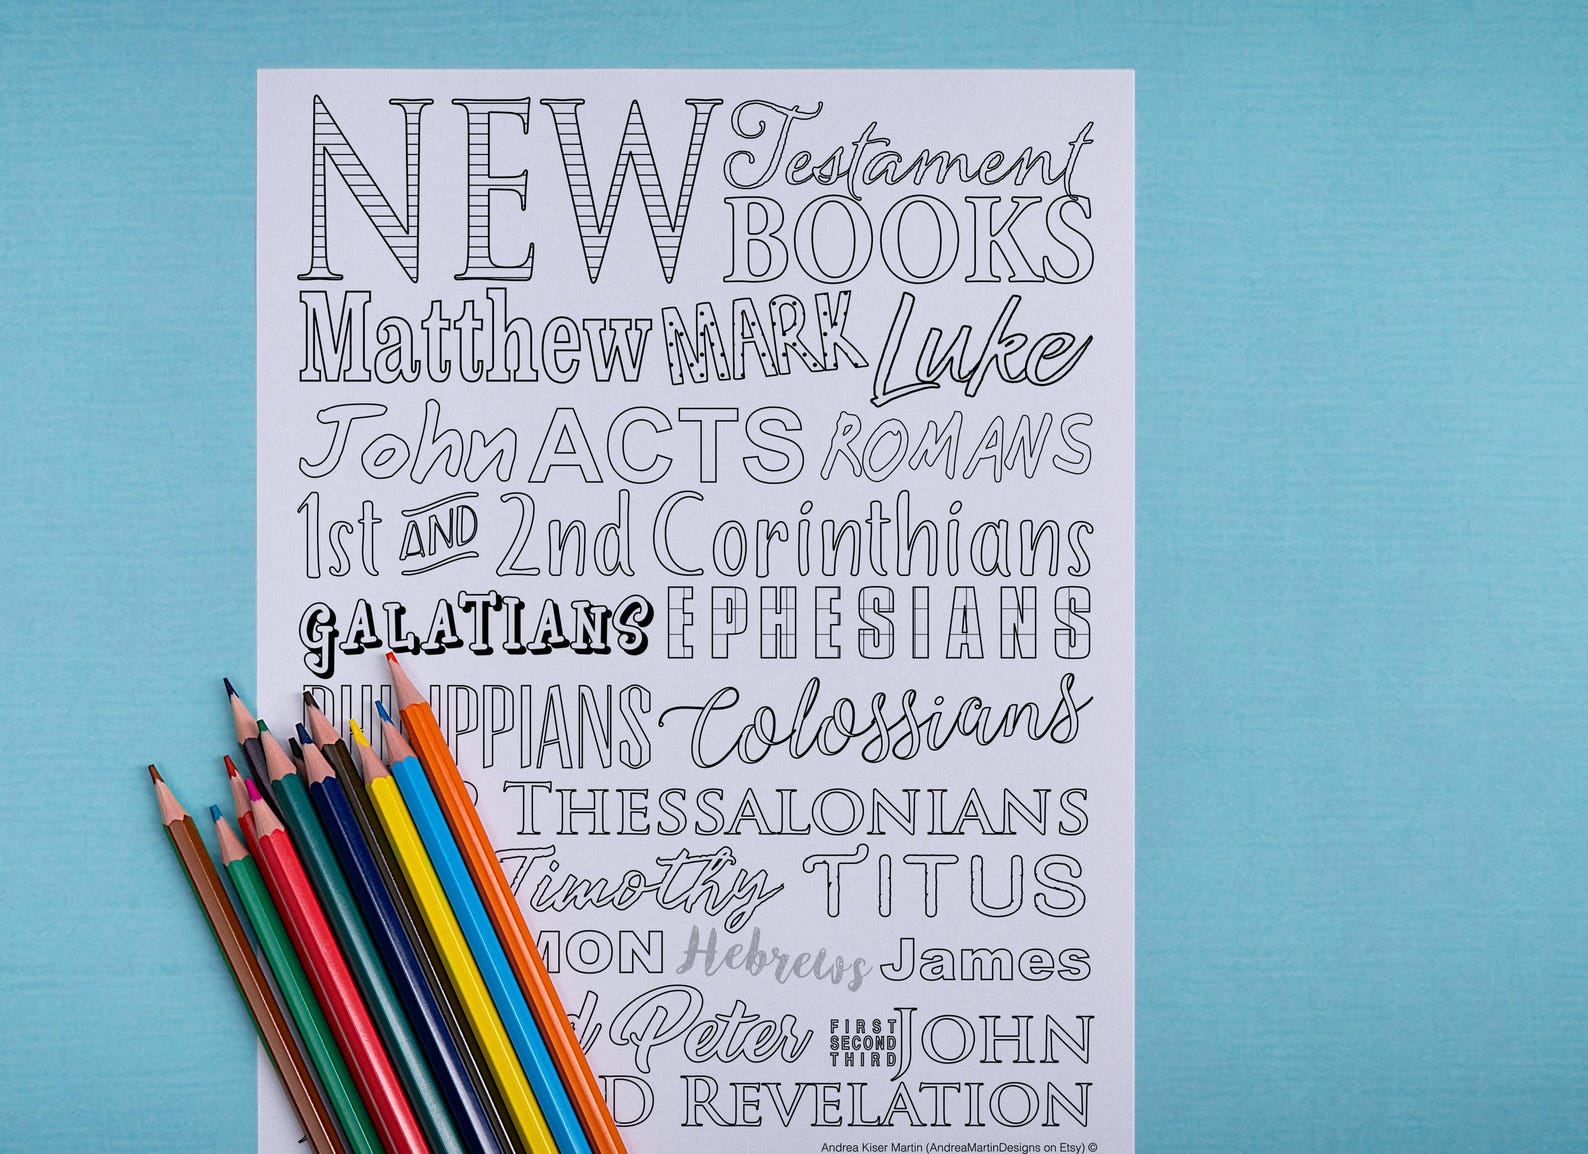 NEW Testament BOOKS
Matthew MARK Luke
John ACTS ROMANS
1st AND 2nd Corinthians
GALATIANS EPHESIANS
PHILIPPIANS Colossians
THESSALONIANS
Timothy TITUS
MON Hebrews James
d Peter FIRST SECOND THIRD JOHN
D REVELATION
Andrea Kiser Martin (AndreaMartinDesigns on Etsy) ©